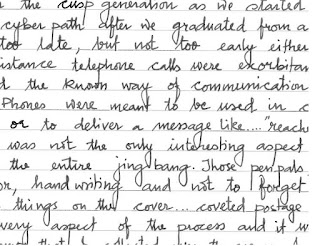 the cusp generation as we started
cyber path after we graduated from a
too late, but not too early either
istance telephone calls were exorbitan
the known way of communication
Phones were meant to be used in c
or to deliver a message like...."reach
was not the only interesting aspect
the entire jing bang. Those pen pals
or, handwriting and not to forget
things on the cover... coveted postage
very aspect of the process and it w